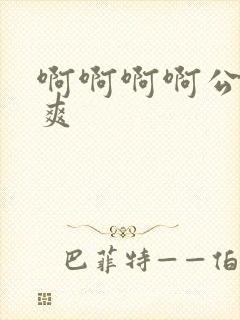 啊啊啊啊公
爽
巴菲特——伯